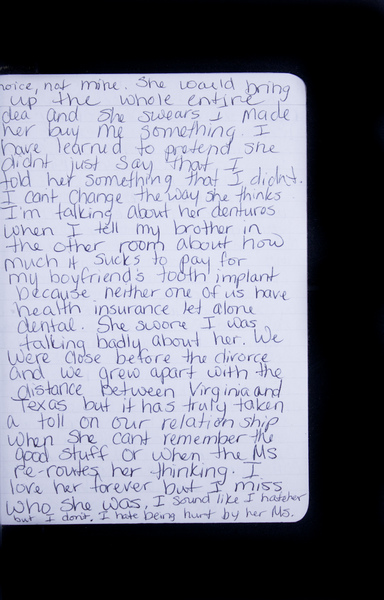 hoice, not mine. She would bring
up the whole entire
dea and she swears I made
her buy me something. I
have learned to pretend she
didnt just say that I
told her something that I didn't.
I cant change the way she thinks
I'm talking about her dentures
when I tell my brother in
the other room about how
much it sucks to pay for
my boyfriend's tooth implant
because neither one of us have
health insurance let alone
dental. She swore I was
talking badly about her. We
were close before the divorce
and we grew apart with the
distance between Virginia and
Texas but it has truly taken
a toll on our relationship
when she cant remember the
good stuff or when the MS
re-routes her thinking. I
love her forever but I miss
who she was. I sound like I hate her
but I don't. I hate being hurt by her MS.